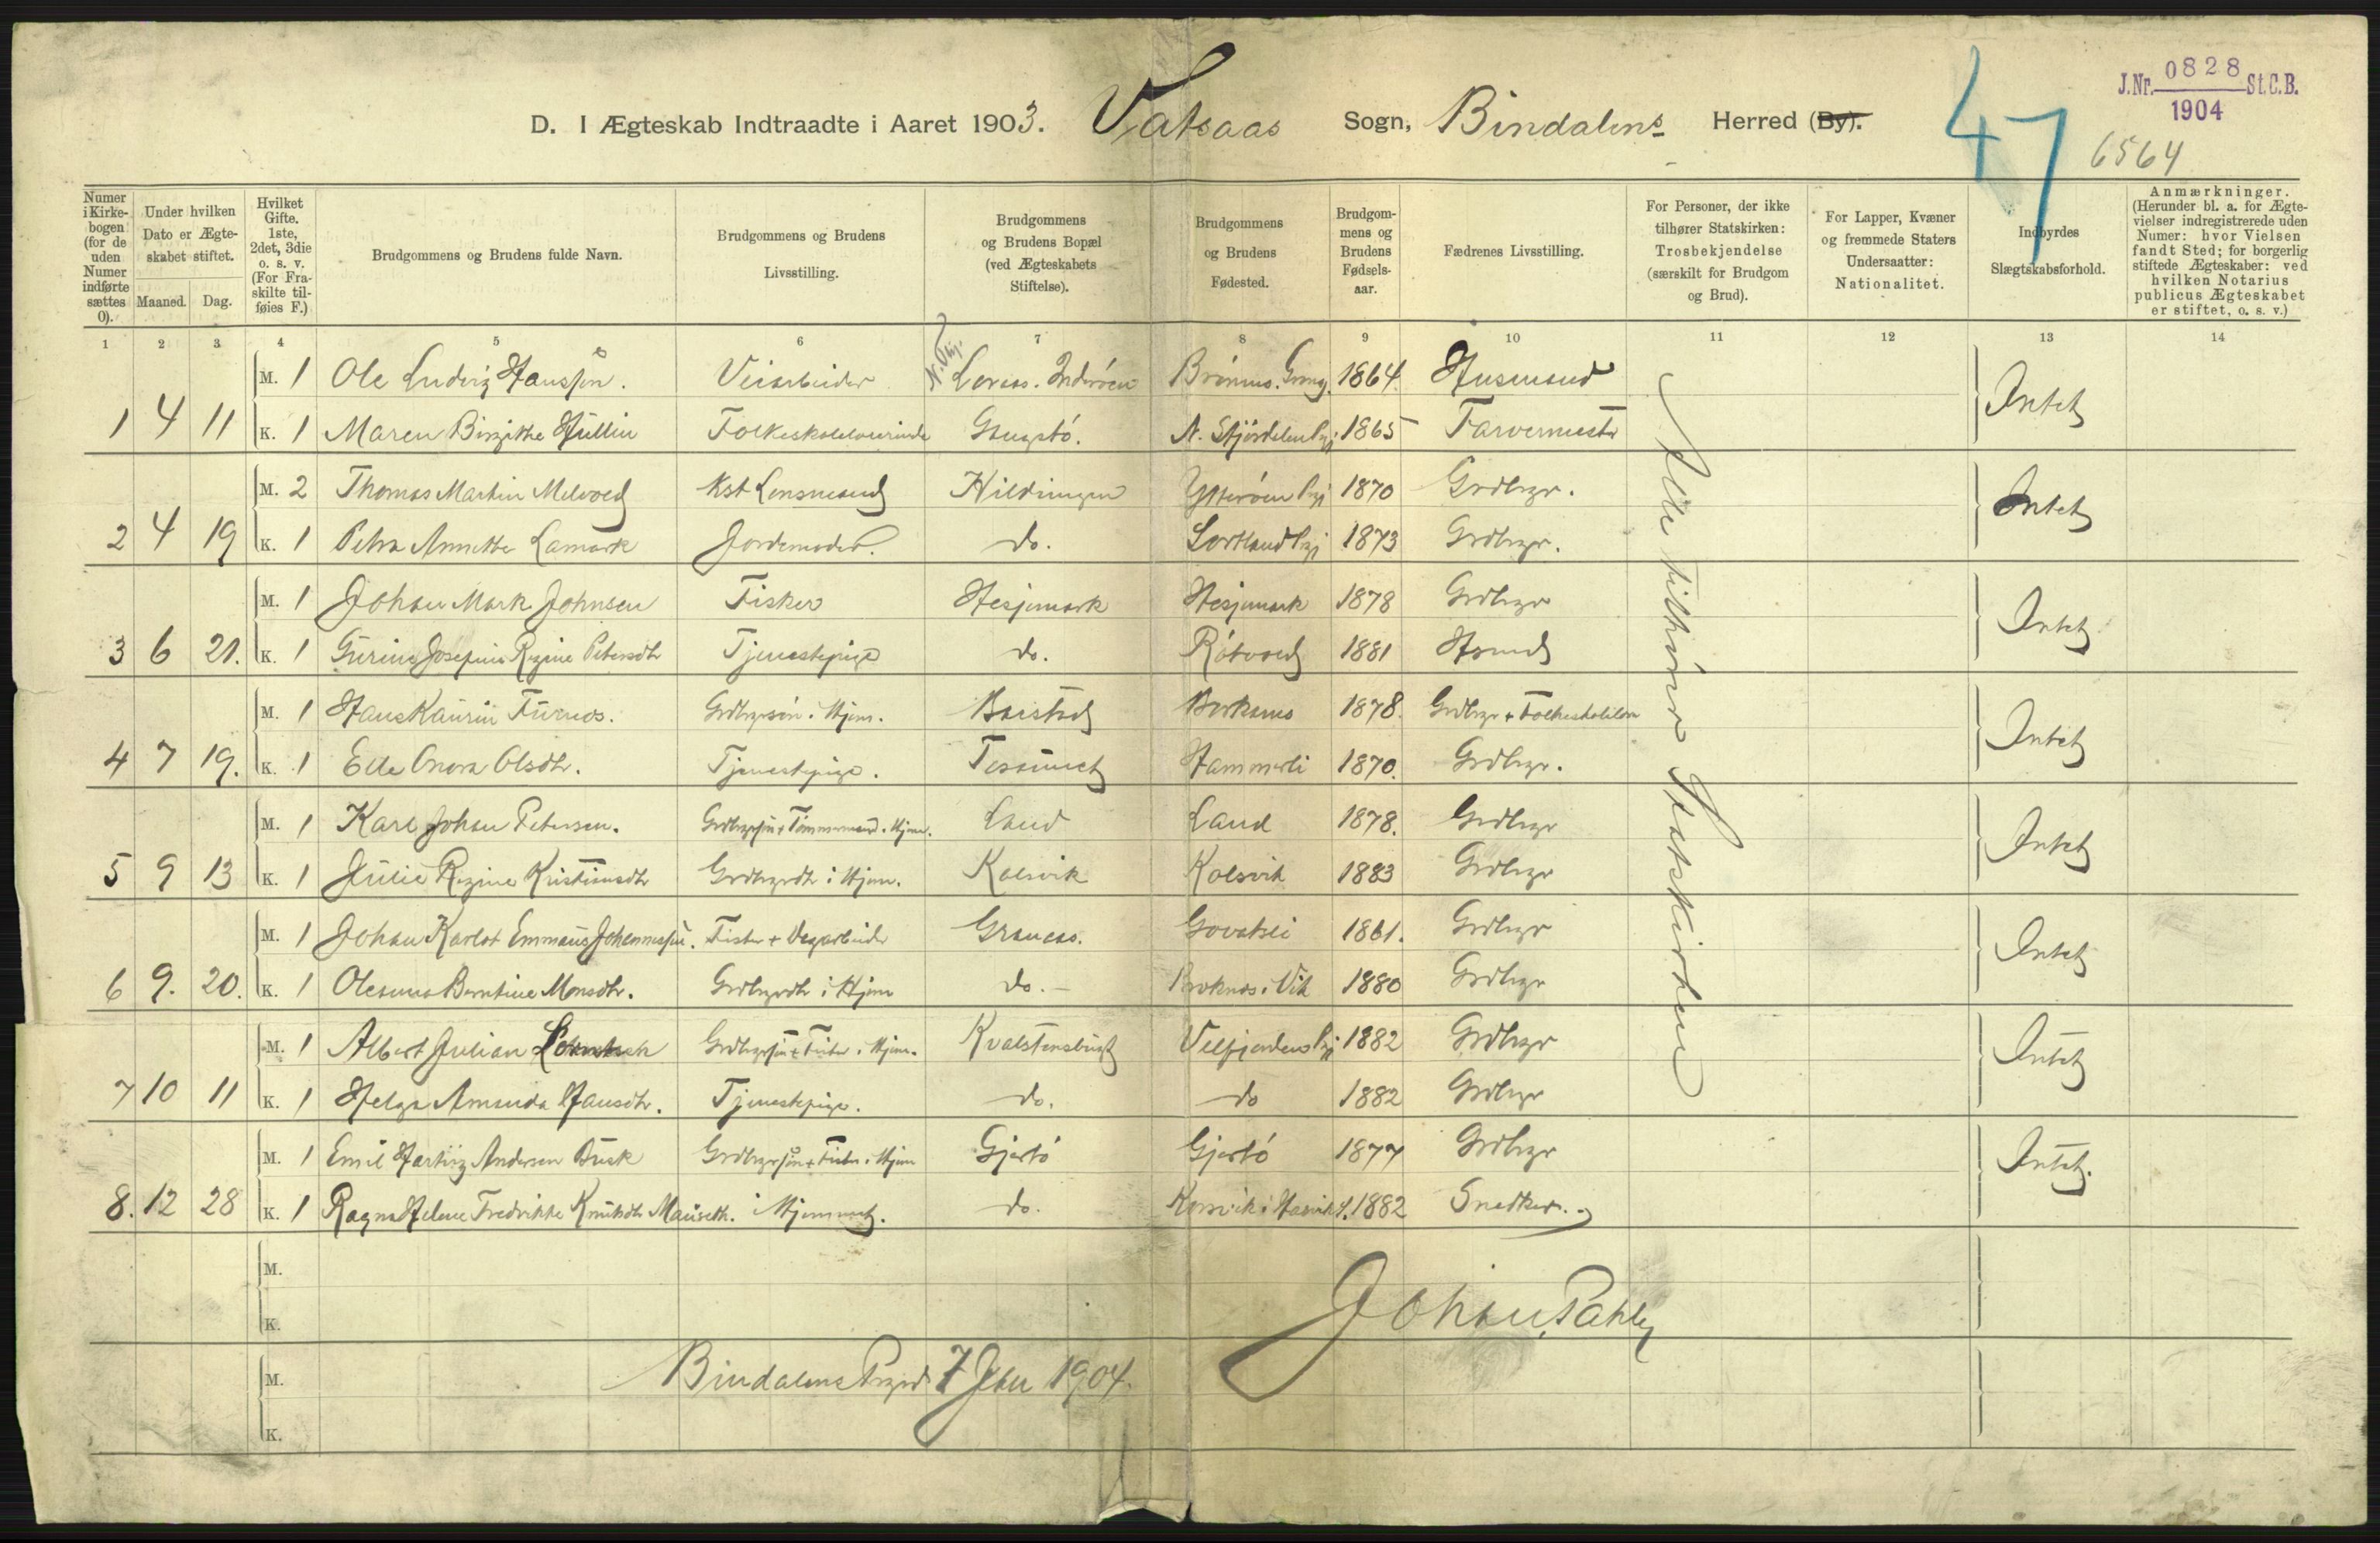 J.Nr. 0828 St.C.B.
1904
47
6564
D. I Ægteskab Indtraadte i Aaret 1903. Vatsaas Sogn, Bindalens Herred (By).
Numer i Kirkebogen (for de uden Numer indførte sættes 0).
Under hvilken Dato er Ægteskabet stiftet.
Maaned. Dag.
Hvilket Gifte. 1ste, 2det, 3die o. s. v. (For Fraskilte tilføies F.)
Brudgommens og Brudens fulde Navn.
Brudgommens og Brudens Livsstilling.
Brudgommens og Brudens Bopæl (ved Ægteskabets Stiftelse).
Brudgommens og Brudens Fødested.
Brudgommens og Brudens Fødselsaar.
Fædrenes Livsstilling.
For Personer, der ikke tilhører Statskirken: Trosbekjendelse (særskilt for Brudgom og Brud).
For Lapper, Kvæner og fremmede Staters Undersaatter: Nationalitet.
Indbyrdes Slægtskabsforhold.
Anmærkninger. (Herunder bl. a. for Ægtevielser indregistrerede uden Numer: hvor Vielsen fandt Sted; for borgerlig stiftede Ægteskaber: ved hvilken Notarius publicus Ægteskabet er stiftet, o. s. v.)
1 2 3 4 5 6 7 8 9 10 11 12 13 14
M. 1 Ole Ludvig Hanssøn. Veiarbeider Inderøen 1864. Husmand
1 4 11 K. 1 Maren Birgitte Hullin Folkeskolelærerinde N. Stjørdalen Pgj. 1865 Farvermester Intet
M. 2 Thomas Martin Melvold Kst Lensmand Hildringen Ytterøen Pgj 1870 Grdbrgr.
2 4 19 K. 1 Petra Annette Lamark Jordemoder. do. Sortland Pgj 1873 Grdbrgr. Intet
M. 1 Johan Mark Johnsen Fisker Hesjemark Hesjemark 1878 Grdbrgr
3 6 21. K. 1 Gurine Josefine Regine Petersdtr Tjenestepige do. Røtvold 1881 Hsmd Intet
M. 1 Hans Kaurin Furnes. Grdbrgersøn i Hjem. Barstad 1878. Grdbrgr + Folkeskolelær
4 7 19. K. 1 Elle Onora Olsdtr. Tjenestepige. Terraact Hammerli 1870. Grdbrgr. Intet
M. 1 Karl Johan Petersen. Grdbrgrsøn + Tømmermand i Hjem. Land Land 1878. Grdbrgr
5 9 13 K. 1 Julie Regine Kristiansdtr Grdbrgrdtr i Hjem. Kolsvik Kolsvik 1883 Grdbrgr Intet
M. 1 Johan Karlot Emmaus Johannessøn. Fisker + Vegarbeider Granaas. 1861. Grdbrgr
6 9. 20. K. 1 Olesuna Berntine Monsdtr. Grdbrgrdtr i Hjem do. Vik 1880 Grdbrgr Intet
M. 1 Albert Julian Grdbrgrsøn + Fisker i Hjem. Velfjordens Pgj 1882 Grdbrgr
7 10 11 K. 1 Helga Amanda Hansdtr. Tjenestepige. do. do 1882 Grdbrgr Intet
M. 1 Emil Hartvig Andersen Busk Grdbrgrsøn + Fisker i Hjem Gjertø Gjertø 1877 Grdbrgr
8. 12 28 K. 1 Ragna Helene Fredrikke Knutsdtr Mauseth. i Hjemmet. do. 1882 Snedker. Intet.
Alle tilhører Statskirken
M.
K.
M.
K.
Johan Pahle
Bindalens Prgrd. 7 Jan 1904.